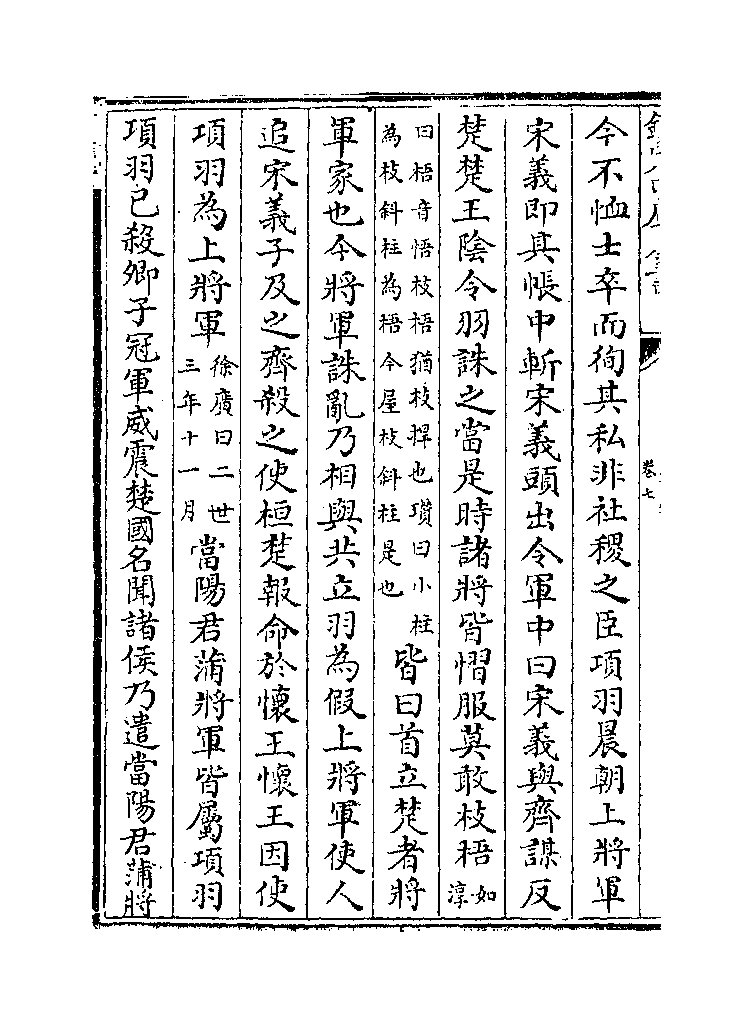 今不恤士卒而徇其私非社稷之臣項羽晨朝上將軍
宋義即其帳中斬宋義頭出令軍中曰宋義與齊謀反
楚楚王陰令羽誅之當是時諸將皆慴服莫敢枝梧如淳
曰梧音悟枝梧猶枝捍也瓚曰小柱為枝斜柱為梧今屋枝斜柱是也皆曰首立楚者將
軍家也今將軍誅亂乃相與共立羽為假上將軍使人
追宋義子及之齊殺之使桓楚報命於懷王懷王因使
項羽為上將軍徐廣曰二世三年十一月當陽君蒲將軍皆屬項羽
項羽已殺卿子冠軍威震楚國名聞諸侯乃遣當陽君蒲將
卷七